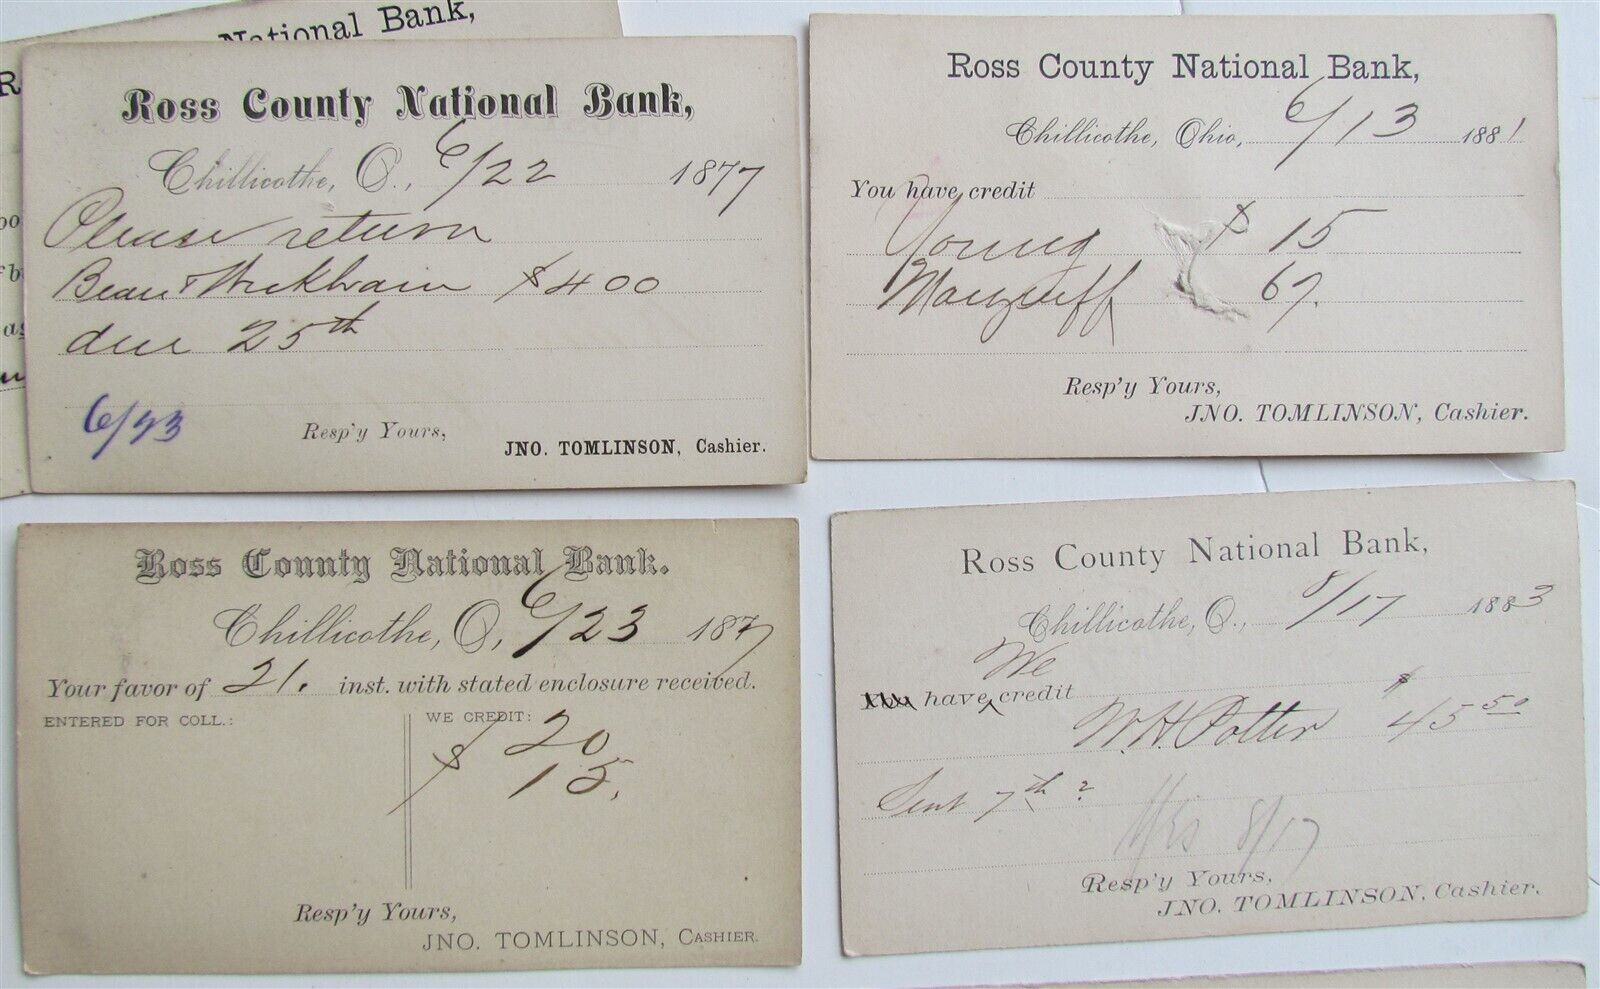 National Bank,
Ross County National Bank,
Chillicothe, O., 6/22 1877
Please return
$400
due 25th
6/23
Resp'y Yours,
JNO. TOMLINSON, Cashier.
Ross County National Bank,
Chillicothe, Ohio, 6/13 1881
You have credit
Young $ 15
67.
Resp'y Yours,
JNO. TOMLINSON, Cashier.
Ross County National Bank.
Chillicothe, O, 6/23 1877
Your favor of 21. inst. with stated enclosure received.
ENTERED FOR COLL.:
WE CREDIT:
$ 20
15,
Resp'y Yours,
JNO. TOMLINSON, CASHIER.
Ross County National Bank,
Chillicothe, O., 8/17 1883
We
have ^ credit
W. H. Potter $45 50
Sent 7th ?
8/17
Resp'y Yours,
JNO. TOMLINSON, Cashier.